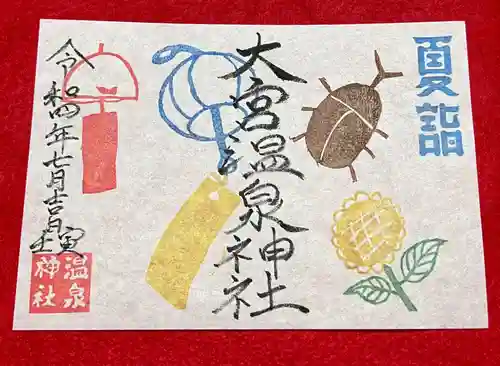 夏詣
大宮温泉神社
令和四年七月吉日
壬寅
温泉神社